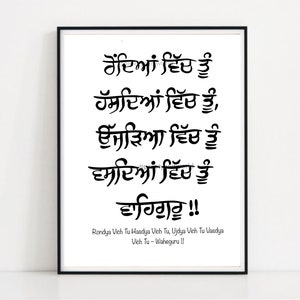 ਰੋਂਦਿਆਂ ਵਿੱਚ ਤੂੰ
ਹੱਸਦਿਆਂ ਵਿੱਚ ਤੂੰ,
ਉੱਜੜਿਆ ਵਿੱਚ ਤੂੰ
ਵਸਦਿਆਂ ਵਿੱਚ ਤੂੰ
ਵਾਹਿਗੁਰੂ !!
Rondya Vich Tu Hasdya Vich Tu, Ujdya Vich Tu Vasdya
Vich Tu - Waheguru !!